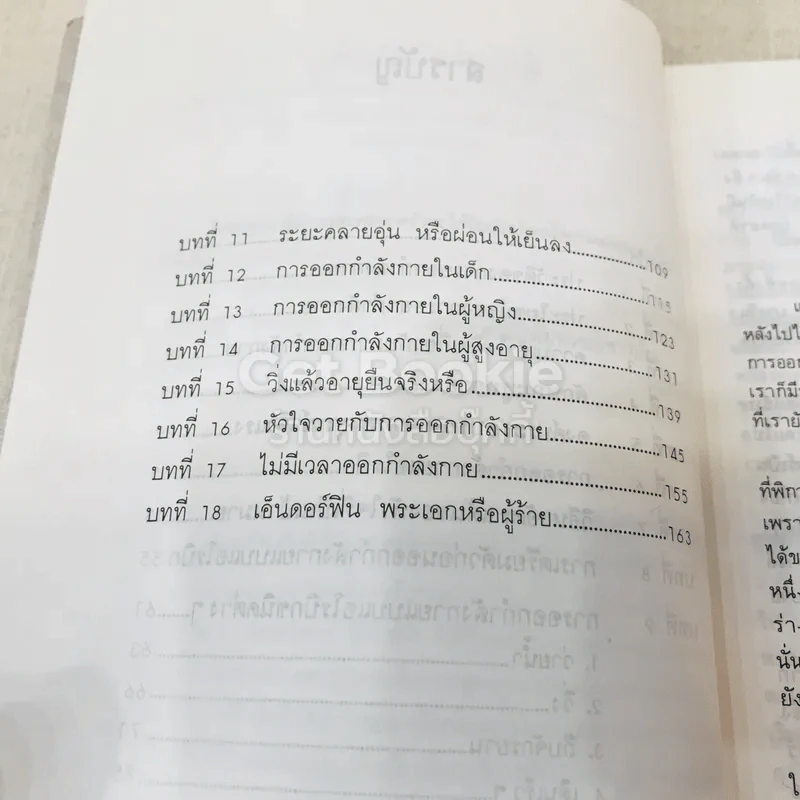 บทที่ 11 ระยะคลายอุ่น หรือผ่อนให้เย็นลง....................109
บทที่ 12 การออกกำลังกายในเด็ก....................115
บทที่ 13 การออกกำลังกายในผู้หญิง....................123
บทที่ 14 การออกกำลังกายในผู้สูงอายุ....................131
บทที่ 15 วิ่งแล้วอายุยืนจริงหรือ....................139
บทที่ 16 หัวใจวายกับการออกกำลังกาย....................145
บทที่ 17 ไม่มีเวลาออกกำลังกาย....................155
บทที่ 18 เอ็นดอร์ฟิน พระเอกหรือผู้ร้าย....................163
Get Bookie
ร้านหนังสืออยู่นี่
หลังไปใ
การออก
เราก็มี
ที่เรายั
ที่พิกา
เพรา
ได้ข
หนึ่ง
ร่าง
นั่น
ยัง